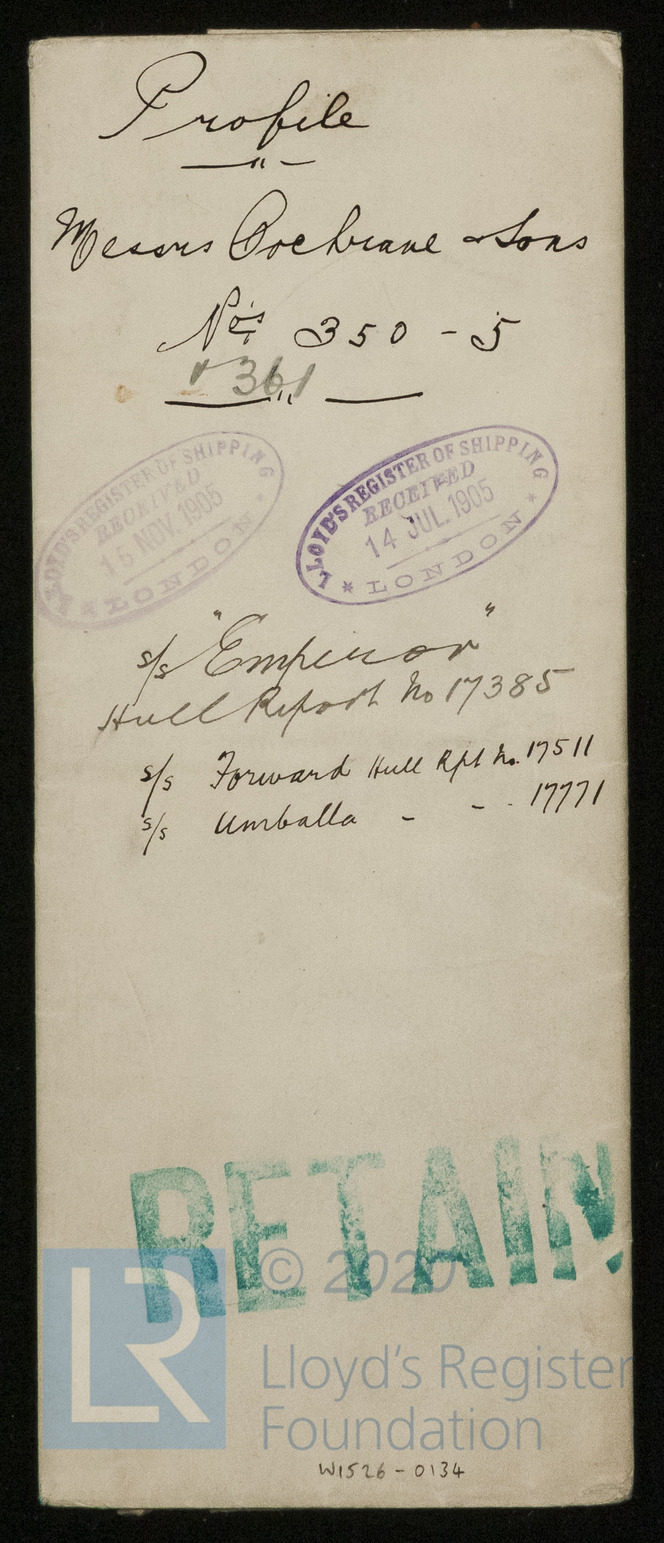 Profile
"
Messrs Cochrane & Sons
Nos 350 - 5
& 361
"
LLOYD'S REGISTER OF SHIPPING
RECEIVED
15 NOV. 1905
* LONDON *
LLOYD'S REGISTER OF SHIPPING
RECEIVED
14 JUL. 1905
* LONDON *
s/s "Emperor"
Hull Report No 17385
s/s Forward Hull Rpt No. 17511
s/s Umballa - - . 17771
RETAIN
LR © 2020
Lloyd's Register
Foundation
W1526 - 0134